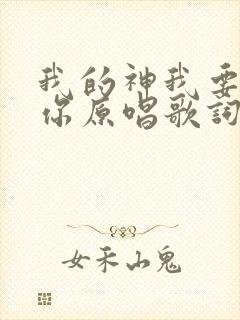 我的神我要
你原唱歌詞
女禾山鬼